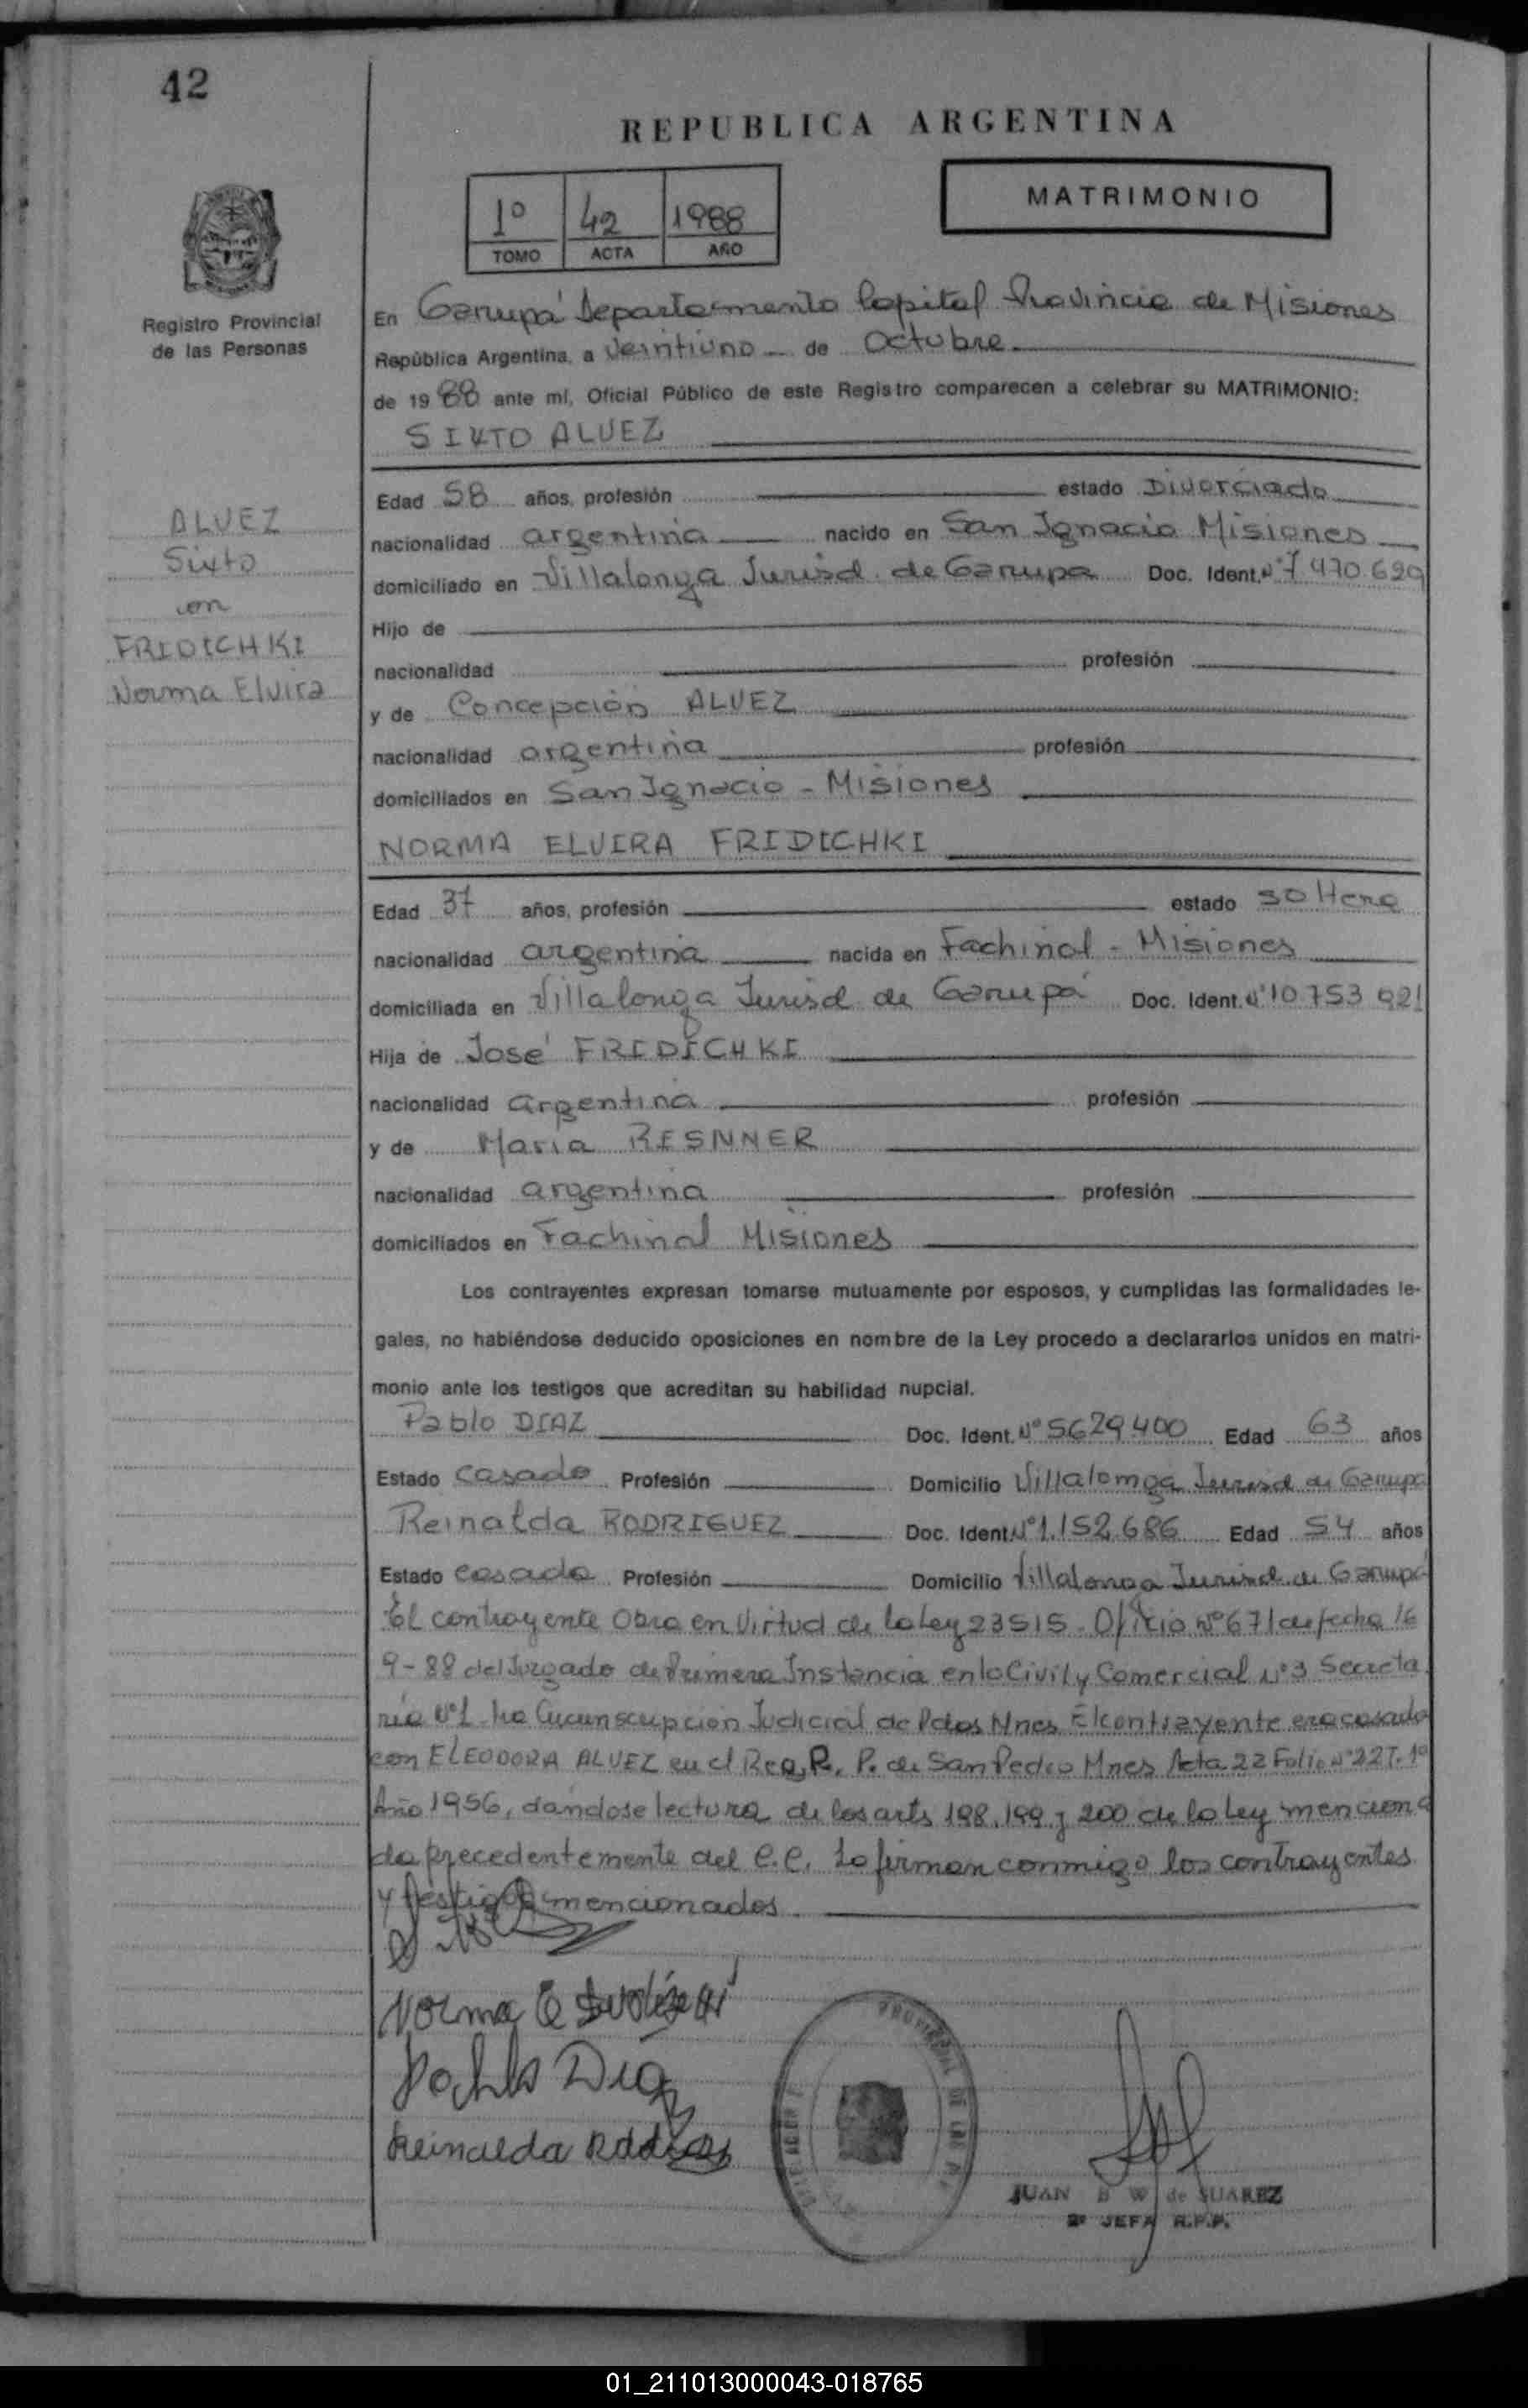 42
REPUBLICA ARGENTINA
MATRIMONIO
1º 42 1988
TOMO ACTA AÑO
Registro Provincial
de las Personas
En Garupá Departamento Capital Provincia de Misiones
República Argentina, a Veintiuno de Octubre
de 1988 ante mí, Oficial Público de este Registro comparecen a celebrar su MATRIMONIO:
SIXTO ALVEZ
ALVEZ
Sixto
con
FRIDICHKI
Norma Elvira
Edad 58 años, profesión estado Divorciado
nacionalidad argentina nacido en San Ignacio Misiones
domiciliado en Villalonga Jurisd. de Garupa Doc. Ident. Nº 7.470.629
Hijo de
nacionalidad profesión
y de Concepción ALVEZ
nacionalidad argentina profesión
domiciliados en San Ignacio - Misiones
NORMA ELVIRA FRIDICHKI
Edad 37 años, profesión estado soltera
nacionalidad argentina nacida en Fachinal - Misiones
domiciliada en Villalonga Jurisd de Garupá Doc. Ident. Nº 10.753 921
Hija de José FRIDICHKI
nacionalidad argentina profesión
y de Maria RESNNER
nacionalidad argentina profesión
domiciliados en Fachinal Misiones
Los contrayentes expresan tomarse mutuamente por esposos, y cumplidas las formalidades le-
gales, no habiéndose deducido oposiciones en nombre de la Ley procedo a declararlos unidos en matri-
monio ante los testigos que acreditan su habilidad nupcial.
Pablo DIAZ Doc. Ident. Nº 5629400 Edad 63 años
Estado Casado Profesión Domicilio Villalonga Jurisd de Garupa
Reinalda RODRIGUEZ Doc. Ident. Nº 1.152.686 Edad 54 años
Estado casada Profesión Domicilio Villalonga Jurisd. de Garupá
El contrayente Obra en Virtud de la Ley 23515 - Oficio Nº 671 de fecha 16
9-88 del Juzgado de Primera Instancia en lo Civil y Comercial Nº 3 Secreta
ría Nº1 Circunscripción Judicial de Pdas Mnes El contrayente era casado
con ELEODORA ALVEZ en el Reg. R. P. de San Pedro Mnes Acta 22 Folio Nº 22 T. 1º
Año 1956, dándose lectura de los arts 198, 199 y 200 de la Ley menciona
da precedentemente del C.C. Lo firman conmigo los contrayentes
y testigos mencionados
Norma E
Pablo Diaz
Reinalda
PROVINCIAL DE LAS
JUAN B W de SUAREZ
JEFA R.P.P.
01_211013000043-018765